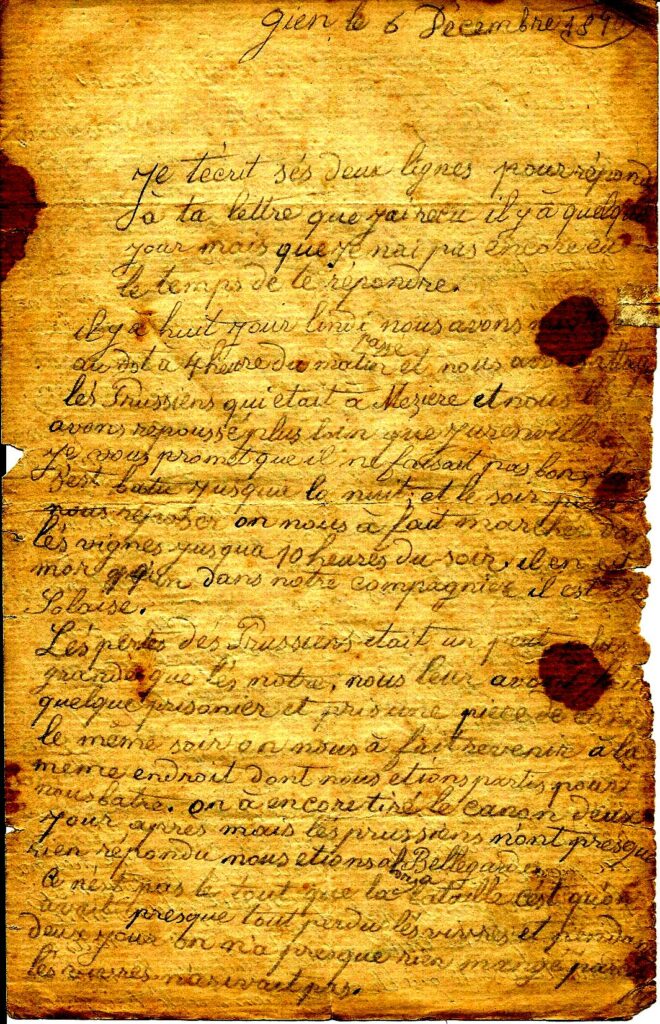 Gien le 6 Décembre 18
Je técrit sés deux lignes pour répond
à ta lettre que j'ai recu il y à quelque
jour mais que je nai pas encore eu
le temps de te répondre.
il y a huit jour lindi nous avons
passe
au à 4 heure du matin et nous
lés Prussiens qui était à Meziere et nous
avons répoussé plus loin que Juranville
Je vous promet que il ne faisait pas bon,
s'est batu jusque la nuit, et le soir
nous réposer on nous à fait marcher
lés vignes jusqua 10 heures du soir, il en est
mor dans notre compagnier il est de
Solaise.
Lés pertes dés Prussiens était un peut
grande que lés notre, nous leur
quelque prisonier et pris une pièce de
le même soir on nous à fait revenir à la
même endroit dont nous etions partis pour
nous batre. on à encore tiré le canon deux
jour apres mais lés prussiens n'ont presque
rien répondu nous etions à Bellegarde
Ce n'est pas le tout que la bataille c'est qu'on
avait presque tout perdu lés vivres et pendant
deux jour on n'a presque rien mangé
lés vivres n'arivait pas.